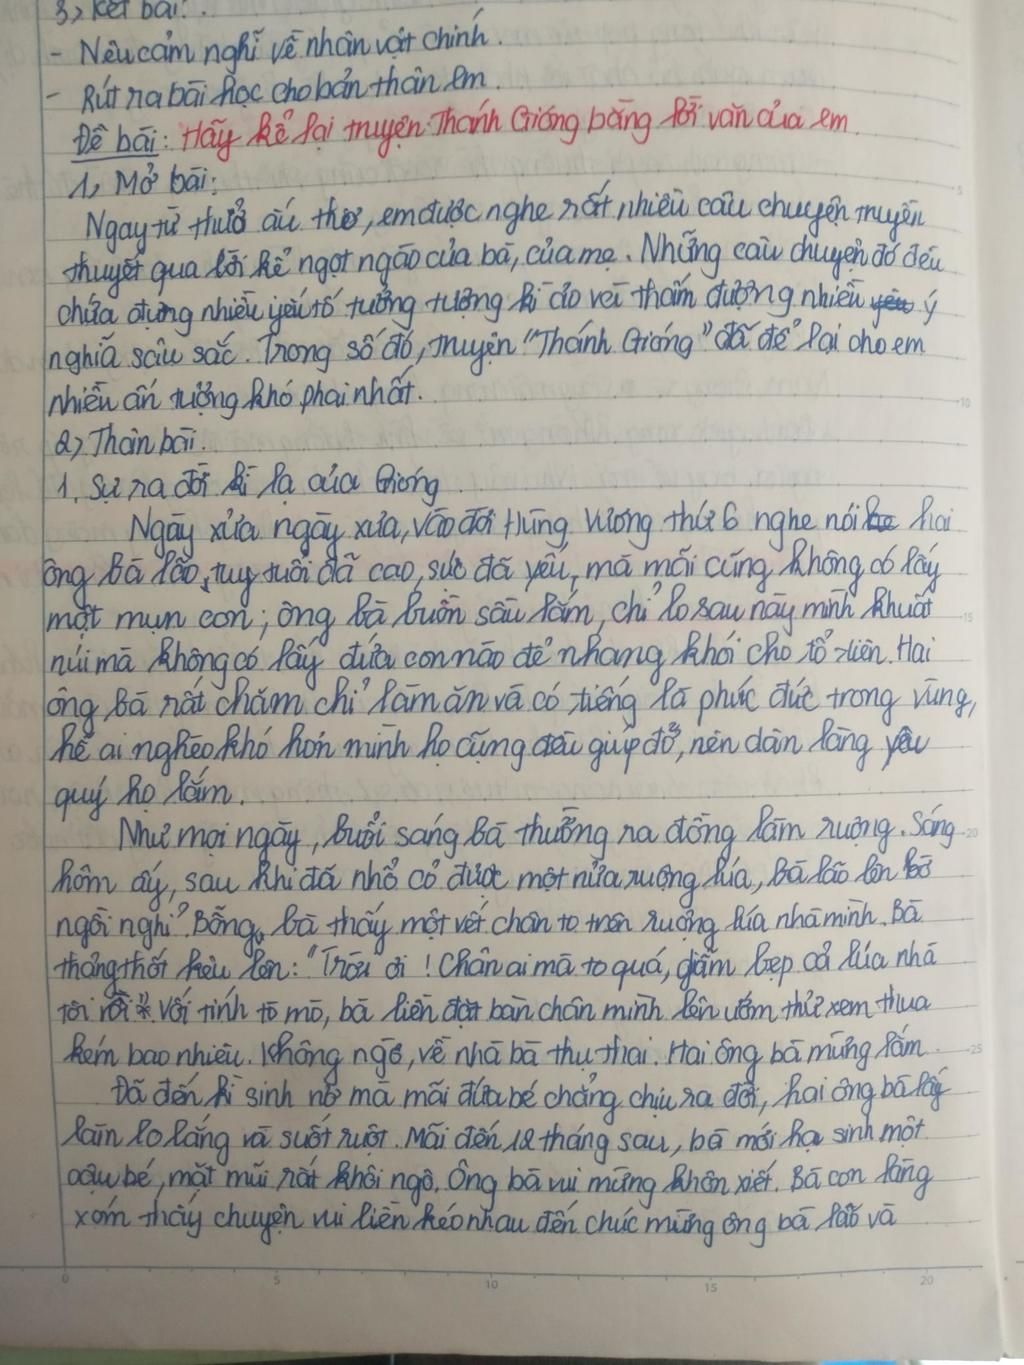 3, Kết bài:
- Nêu cảm nghĩ về nhân vật chính.
- Rút ra bài học cho bản thân em.
Đề bài: Hãy kể lại truyện Thánh Gióng bằng lời văn của em.
1, Mở bài:
Ngay từ thuở ấu thơ, em được nghe rất nhiều câu chuyện truyền
thuyết qua lời kể ngọt ngào của bà, của mẹ. Những câu chuyện đó đều
chứa đựng nhiều yếu tố tưởng tượng kì ảo và thấm đượng nhiều ý
nghĩa sâu sắc. Trong số đó, truyện "Thánh Gióng" đã để lại cho em
nhiều ấn tượng khó phai nhất.
2, Thân bài.
1, Sự ra đời kì lạ của Gióng
Ngày xửa ngày xưa, vào đời Hùng Vương thứ 6 nghe nói hai
ông bà lão, tuy tuổi đã cao, sức đã yếu, mà mãi cũng không có lấy
một mụn con; ông bà buồn sầu lắm, chỉ lo sau này mình khuất
núi mà không có lấy đứa con nào để nhang khói cho tổ tiên. Hai
ông bà rất chăm chỉ làm ăn và có tiếng là phúc đức trong vùng,
hễ ai nghèo khó hơn mình họ cũng đều giúp đỡ, nên dân làng yêu
quý họ lắm.
Như mọi ngày, buổi sáng bà thường ra đồng làm ruộng. Sáng
hôm ấy, sau khi đã nhổ cỏ được một nửa ruộng lúa, bà lão lên bờ
ngồi nghỉ. Bỗng, bà thấy một vết chân to trên ruộng lúa nhà mình. Bà
thảng thốt kêu lên: "Trời ơi! Chân ai mà to quá, giẫm bẹp cả lúa nhà
tôi rồi". Với tính tò mò, bà liền đặt bàn chân mình lên ướm thử xem thua
kém bao nhiêu. Không ngờ, về nhà bà thụ thai. Hai ông bà mừng lắm.
Đã đến kì sinh nở mà mãi đứa bé chẳng chịu ra đời, hai ông bà lấy
làm lo lắng và suốt ruột. Mãi đến 12 tháng sau, bà mới hạ sinh một
cậu bé, mặt mũi rất khôi ngô. Ông bà vui mừng khôn xiết. Bà con làng
xóm thấy chuyện vui liền kéo nhau đến chúc mừng ông bà lão và